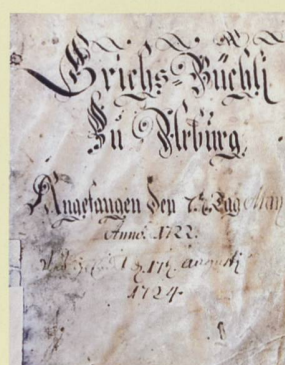 Grichs=Büchli
Zu Arburg,
Angefangen den 7. Tag May
Anno. 1722.
17. augusti
1724.